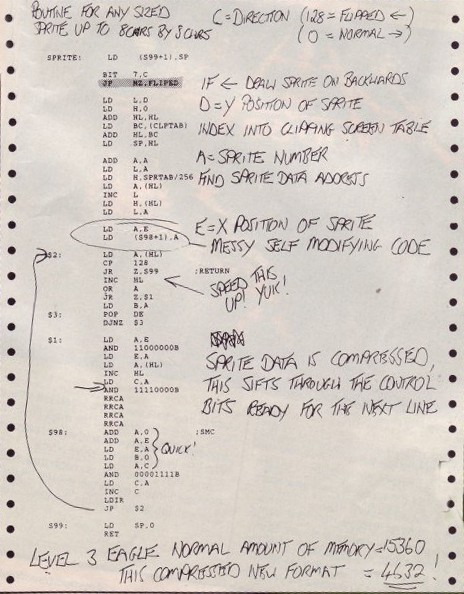 ROUTINE FOR ANY SIZED C=DIRECTION (128=FLIPPED ←)
SPRITE UP TO 8CHRS BY 3CHRS (0=NORMAL →)
SPRITE: LD (S99+1),SP
BIT 7,C
JP NZ,FLIPED IF ← DRAW SPRITE ON BACKWARDS
LD L,D D=Y POSITION OF SPRITE
LD H,0
ADD HL,HL
LD BC,(CLPTAB) INDEX INTO CLIPPING SCREEN TABLE
ADD HL,BC
LD SP,HL
ADD A,A A=SPRITE NUMBER
LD L,A
LD H,SPRTAB/256 FIND SPRITE DATA ADDRESS
LD A,(HL)
INC L
LD H,(HL)
LD L,A
LD A,E E=X POSITION OF SPRITE
LD (S98+1),A MESSY SELF MODIFYING CODE
$2: LD A,(HL)
CP 128
JR Z,S99 ;RETURN
INC HL SPEED THIS
OR A UP! YUK!
JR Z,$1
LD B,A
$3: POP DE
DJNZ $3
$1: LD A,E
AND 11000000B
LD E,A SPRITE DATA IS COMPRESSED,
LD A,(HL)
INC HL THIS SIFTS THROUGH THE CONTROL
LD C,A
AND 11110000B BITS READY FOR THE NEXT LINE
RRCA
RRCA
RRCA
RRCA
S98: ADD A,0 ;SMC
ADD A,E
LD E,A QUICK!
LD B,0
LD A,C
AND 00001111B
LD C,A
INC C
LDIR
JP $2
S99: LD SP,0
RET
LEVEL 3 EAGLE NORMAL AMOUNT OF MEMORY=15360
THIS COMPRESSED NEW FORMAT = 4632!